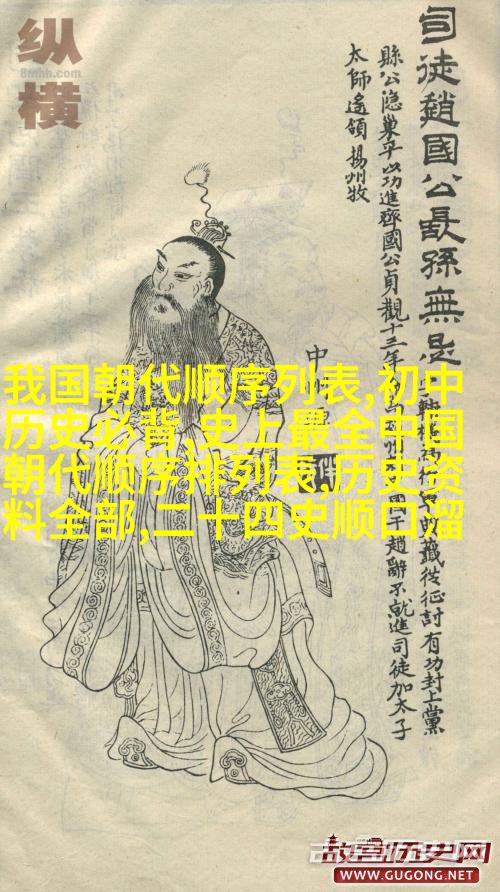 纵横
8mhh.com
司徒趙國公長孫無忌
縣公隐巢平以功進齊國公貞觀十三年
戡從征討有功封上黨
國于趙辭不就進司徒加太子
太師遙領揚州牧
我国朝代顺序列表,初中
历史必背,史上最全中国
朝代顺序排列表,历史资
料全部,二十四史顺口溜
故宫历史网
www.GUGONG.NET